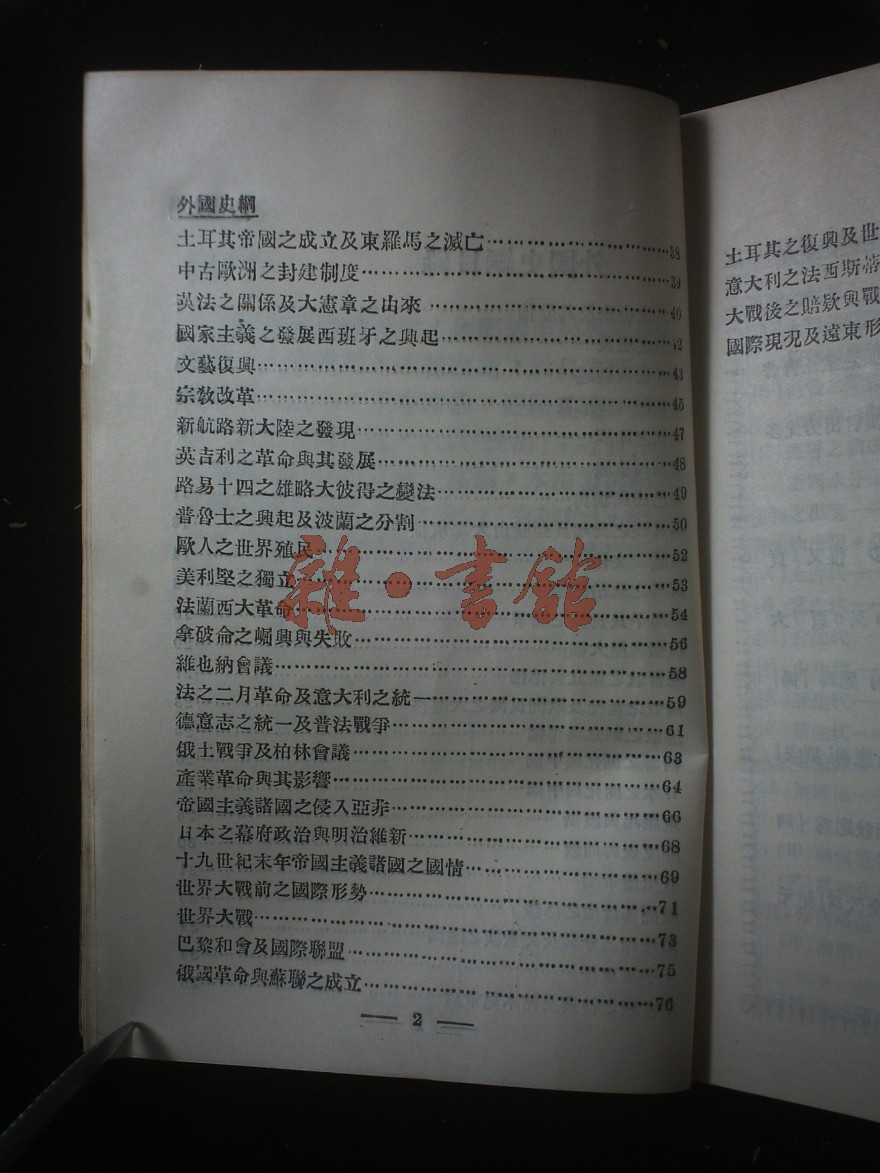 外國史綱
土耳其帝國之成立及東羅馬之滅亡……………………38
中古歐洲之封建制度……………………39
英法之關係及大憲章之由來……………………40
國家主義之發展西班牙之興起……………………42
文藝復興……………………43
宗敎改革……………………45
新航路新大陸之發現……………………47
英吉利之革命與其發展……………………48
路易十四之雄略大彼得之變法……………………49
普魯士之興起及波蘭之分割……………………50
歐人之世界殖民……………………52
美利堅之獨立……………………53
法蘭西大革命……………………54
拿破命之崛興與失敗……………………56
維也納會議……………………58
法之二月革命及意大利之統一……………………59
德意志之統一及普法戰爭……………………61
俄土戰爭及柏林會議……………………63
產業革命與其影響……………………64
帝國主義諸國之侵入亞非……………………66
日本之幕府政治與明治維新……………………68
十九世紀末年帝國主義諸國之國情……………………69
世界大戰前之國際形勢……………………71
世界大戰……………………73
巴黎和會及國際聯盟……………………75
俄國革命與蘇聯之成立……………………76
— 2 —
土耳其之復興及世
意大利之法西斯蒂
大戰後之賠欵與戰
國際現况及遠東形
雜·書館